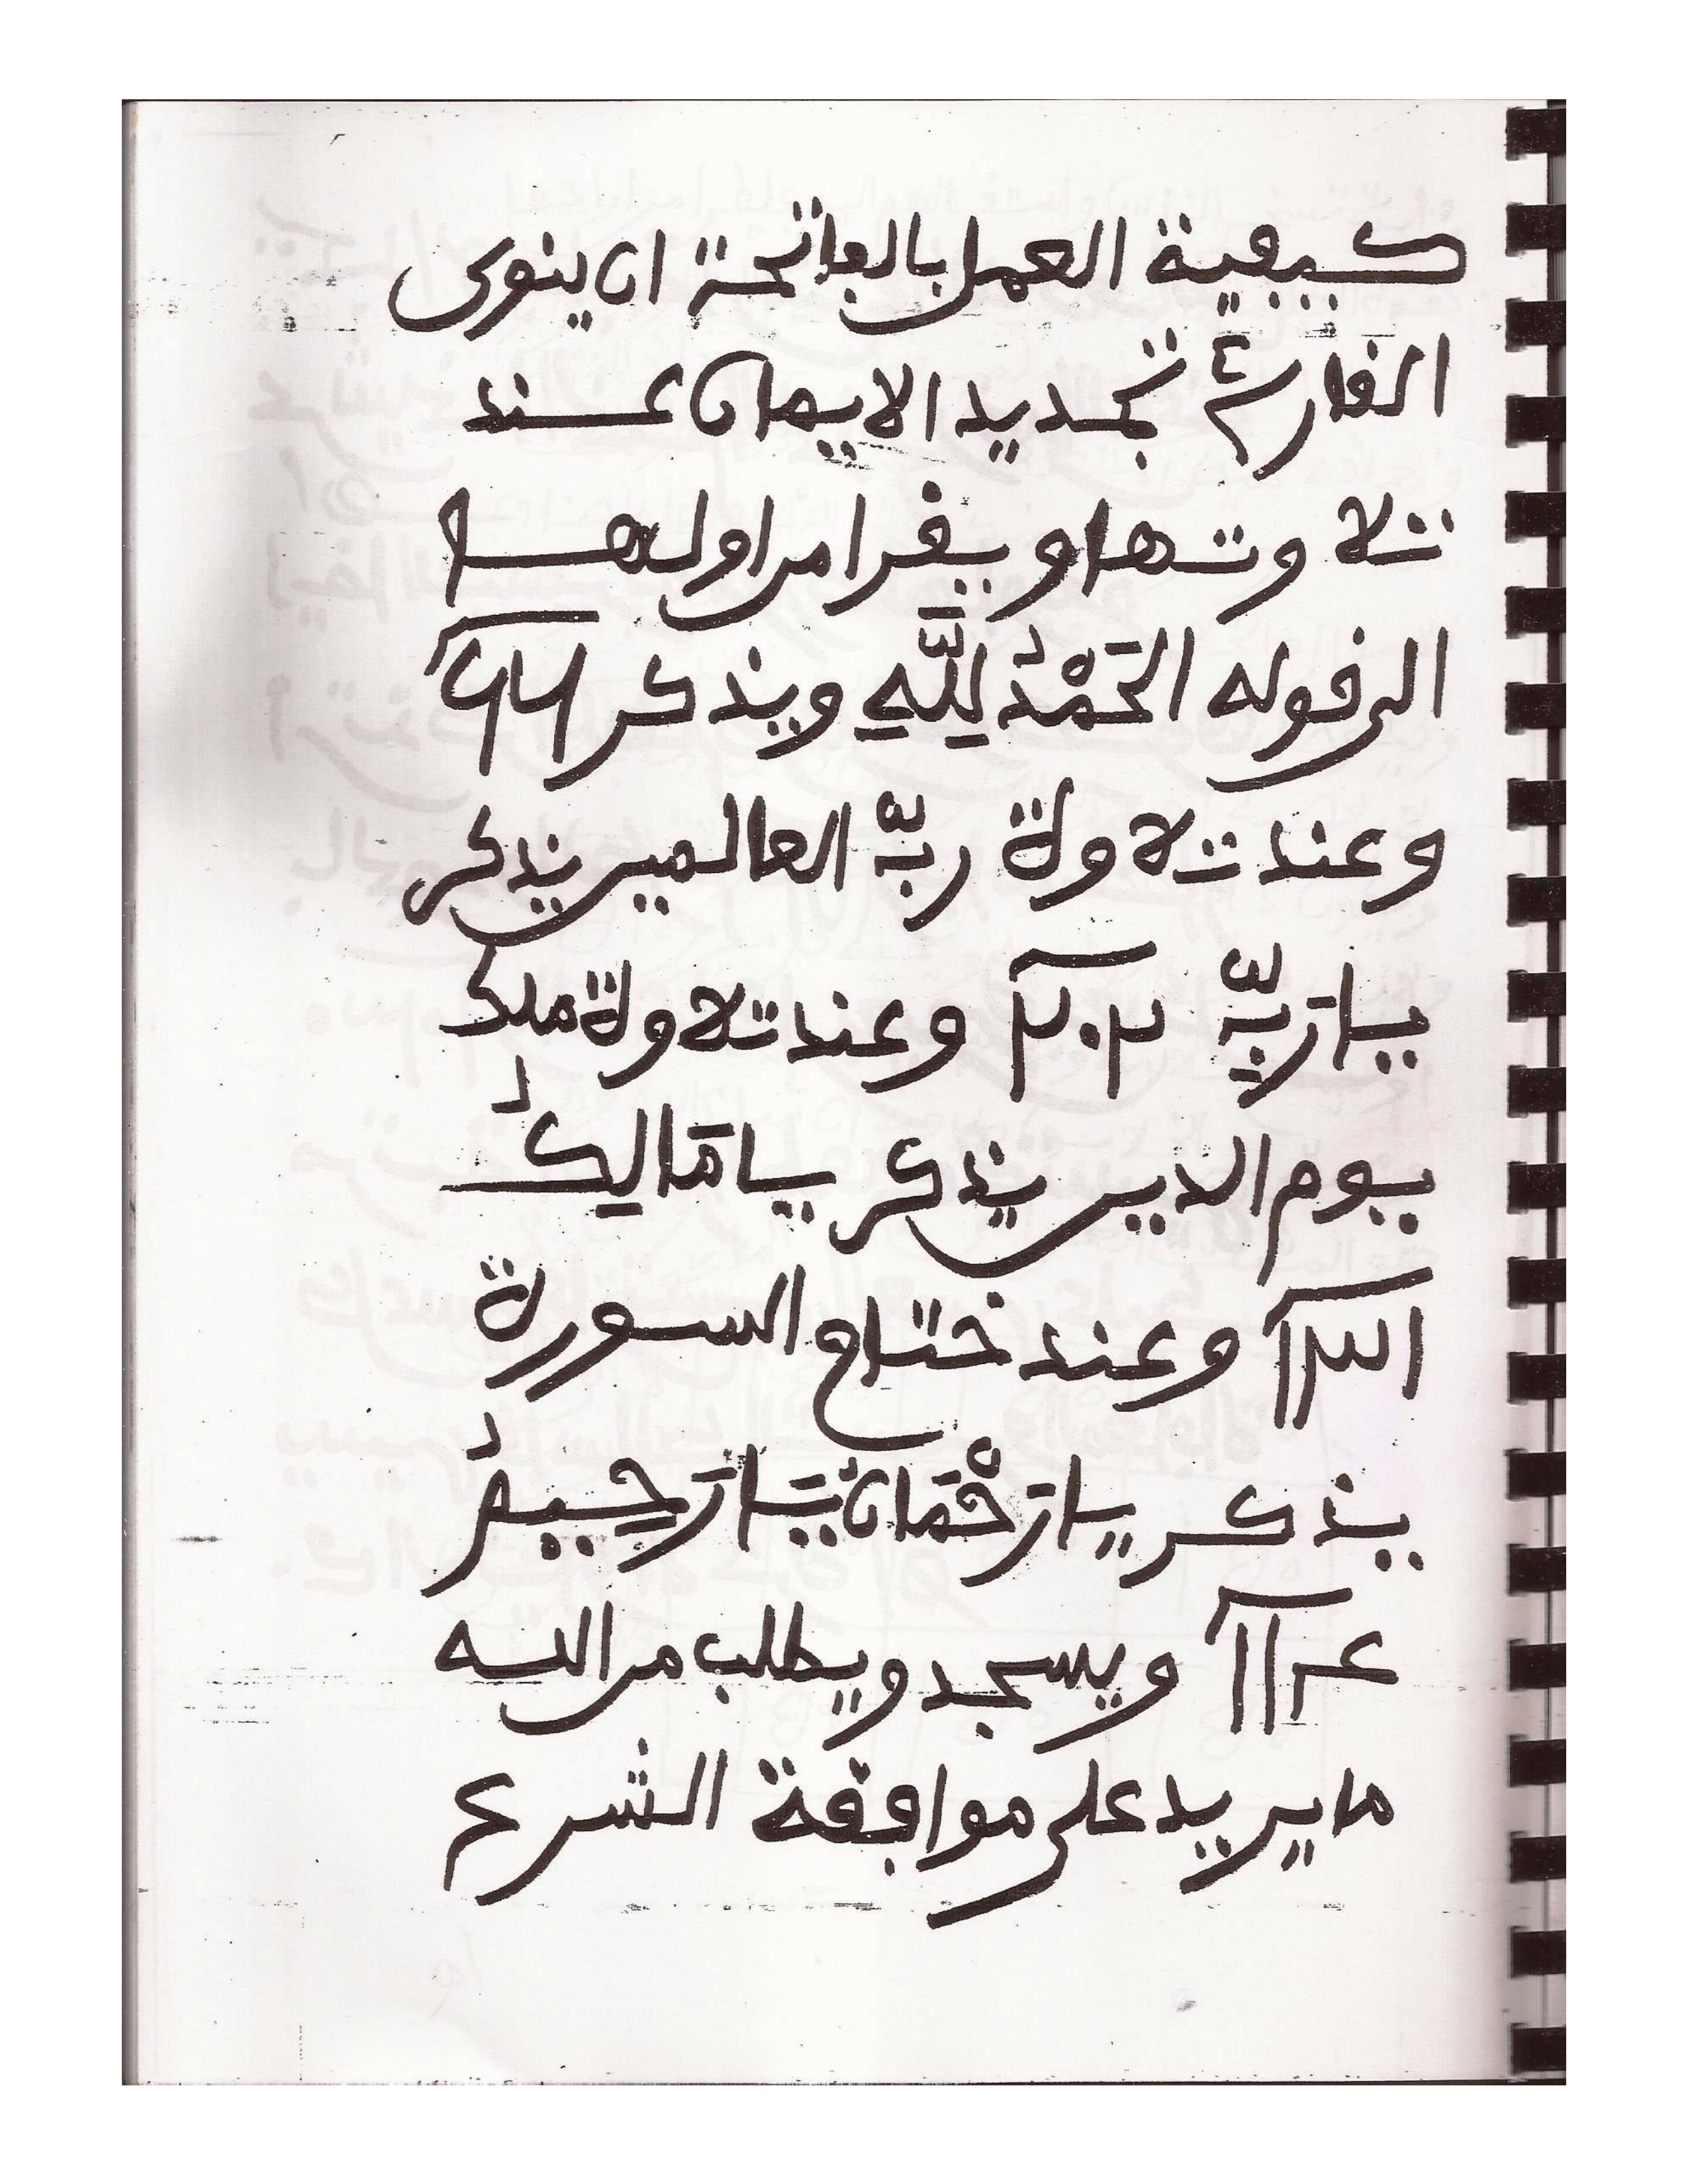 كيفية العمل بالفاتحة ان ينوى
القارئ تجديد الايمان عند
تلاوتها ويقرا من اولها
الى قوله الْحَمْدُ لِلَّهِ ويذكر ٦٦
وعند تلاوة ربّ العالمين يذكر
يا رَبِّ ٢٠٢ وعند تلاوة ملك
يوم الدين يذكر يا مَالِكُ
وعند ختام السورة
يذكر يا رَحْمَانُ يَا رَحِيمُ
ويسجد ويطلب من الله
ما يريد على موافقة الشرع